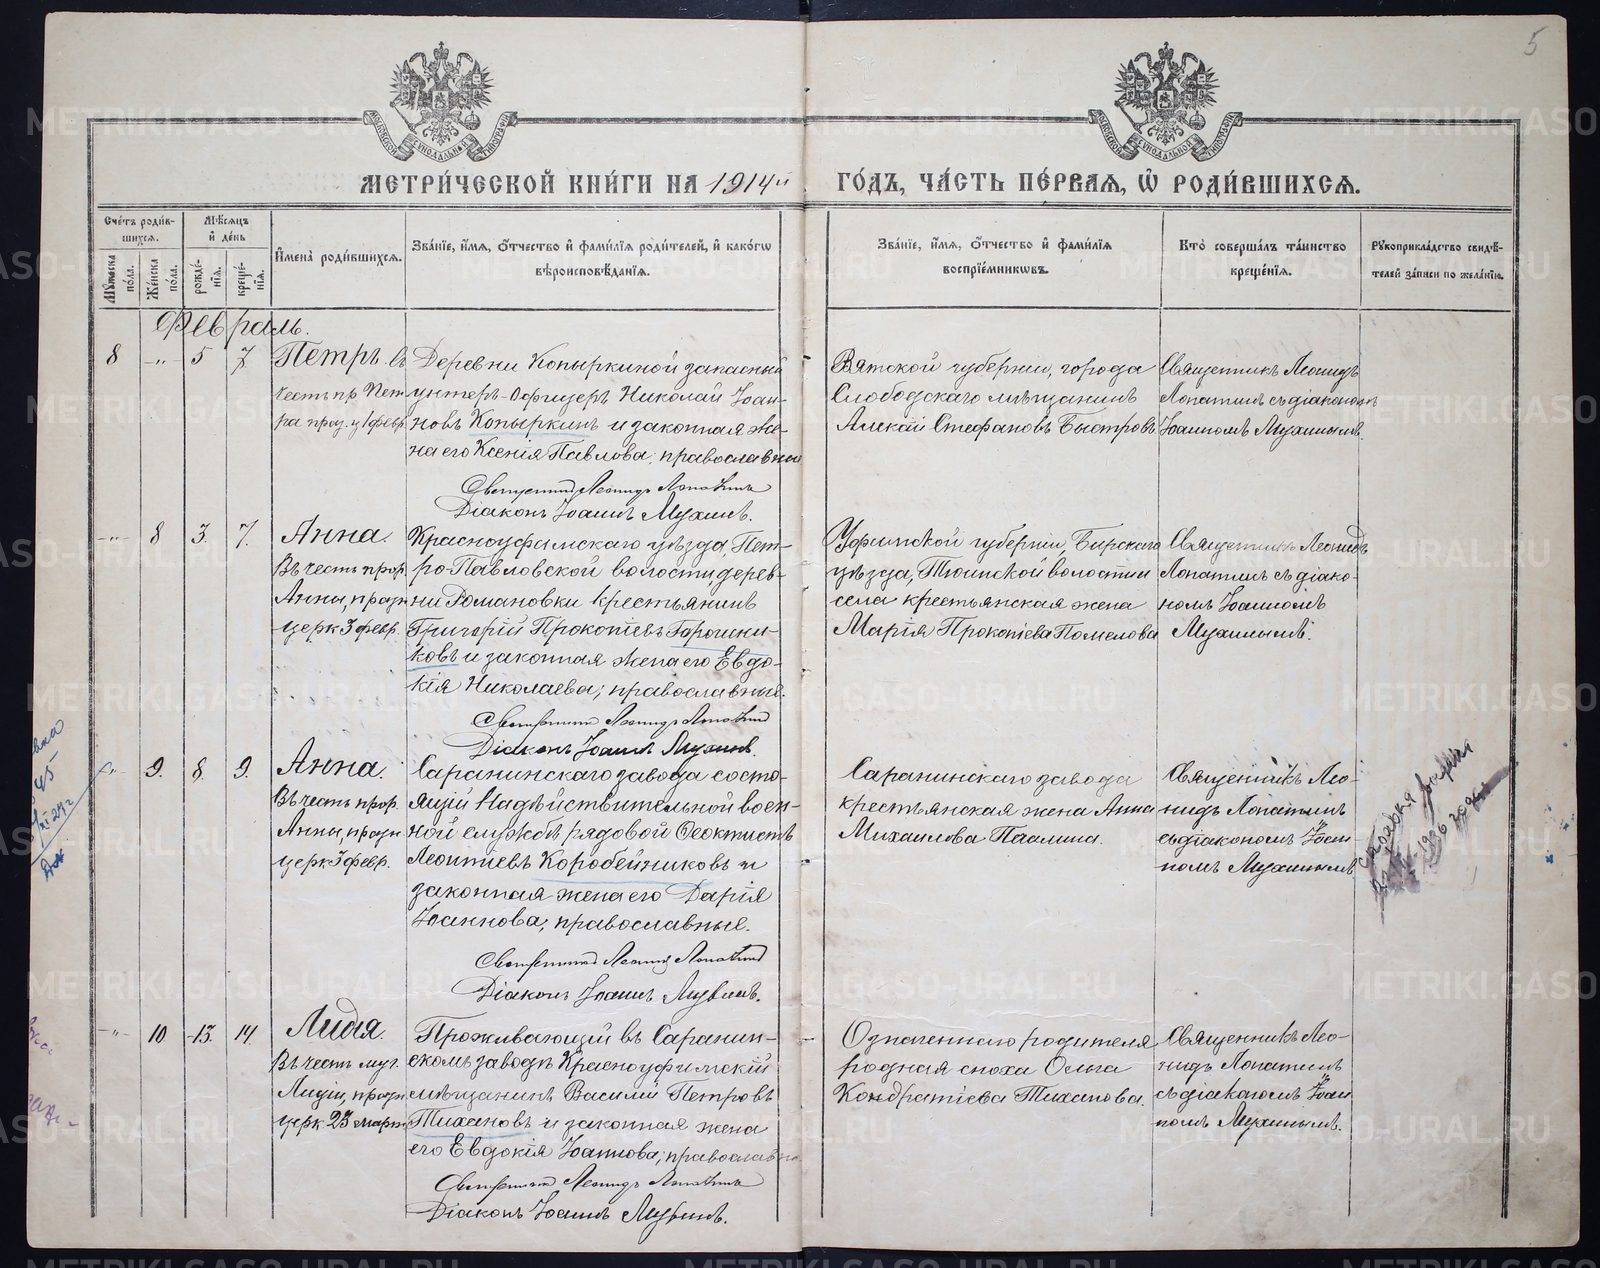 5
МЕТРИ́ЧЕСКОЙ КНИ́ГИ НА 1914й ГО́ДЪ, ЧА́СТЬ ПЕ́РВАЯ, Ѡ РОДИ́ВШИХСЯ.
Сче́тъ роди́в-
шихся.
Му́жеска по́ла.
Же́нска по́ла.
Мѣ́сяцъ
и де́нь
рожде́-
нїя.
креще́-
нїя.
Имена̀ роди́вшихся.
Зва́нїе, и́мя, о́тчество и фами́лїя роди́телей, и како́гѡ
вѣроисповѣ́данїя.
Зва́нїе, и́мя, о́тчество и фами́лїя
воспрїе́мниковъ.
Кто̀ соверша́лъ та́инство
креще́нїя.
Рукоприкла́дство свидѣ́-
телей за́писи по жела́нїю.
Февраль.
8 -"- 5 7
Петръ въ
честь пр Пет
ра праз. ц 1 февр
Деревни Копыркиной запасный
унтеръ-офицеръ Николай Іоан-
новъ Копыркинъ и законная же-
на его Ксенія Павлова; православныи
Священникъ Леонидъ Лопатинъ
Діаконъ Іоаннъ Мухинъ.
Вятской губерніи, города
Слободскаго мѣщанинъ
Алексій Стефановъ Быстровъ
Священникъ Леонидъ
Лопатинъ съ діакономъ
Іоанномъ Мухинымъ.
-"- 8 3. 7.
Анна.
Въ честь прор.
Анны, праздн
церк 3 февр.
Красноуфимскаго уѣзда, Пет-
ро-Павловской волости, дерев-
ни Романовки крестьянинъ
Григорій Прокопіевъ Горошни-
ковъ и законная жена его Евдо-
кія Николаева; православные.
Священникъ Леонидъ Лопатинъ
Діаконъ Іоаннъ Мухинъ.
Уфимской губерніи, Бирскаго
уѣзда, Тюинской волости и
села крестьянская жена
Марія Прокопіева Помелова
Священникъ Леонидъ
Лопатинъ съ діако-
номъ Іоанномъ
Мухинымъ.
-"- 9. 8. 9.
Анна.
Въ честь прор.
Анны, праздн
церк 3 февр.
Саранинскаго завода состо-
ящій на дѣйствительной воен-
ной службѣ рядовой Ѳеоктистъ
Леонтіевъ Коробейниковъ и
законная жена его Дарія
Іоаннова; православные.
Священникъ Леонидъ Лопатинъ
Діаконъ Іоаннъ Мухинъ.
Саранинскаго завода
крестьянская жена Анна
Михаилова Паалина.
Священникъ Лео-
нидъ Лопатинъ
съ діакономъ Іоан
номъ Мухинымъ
-"- 10 13. 14.
Лидія.
Въ честь муч.
Лидіи, праздн
церк 23 март
Проживающій въ Саранин-
скомъ заводѣ Красноуфимскій
мѣщанинъ Василій Петровъ
Тихановъ и законная жена
его Евдокія Іоаннова; православн
Священникъ Леонидъ Лопатинъ
Діаконъ Іоаннъ Мухинъ.
Означеннаго родителя
родная сноха Ольга
Кондратіева Тиханова.
Священникъ Лео-
нидъ Лопатинъ
съ діакономъ Іоан
номъ Мухинымъ.
METRIKI.GASO-URAL.RU